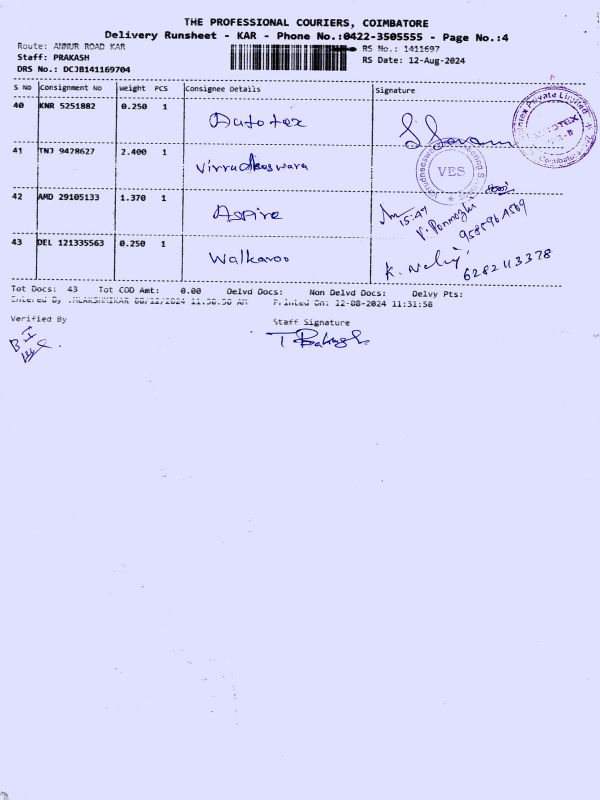 THE PROFESSIONAL COURIERS, COIMBATORE
Delivery Runsheet - KAR - Phone No.:0422-3505555 - Page No.:4
Route: ANNUR ROAD KAR
RS No.: 1411697
Staff: PRAKASH
RS Date: 12-Aug-2024
DRS No.: DCJB141169704
S No Consignment No Weight PCS Consignee Details Signature
40 KNR 5251882 0.250 1 Autotex
41 TNJ 9428627 2.400 1
VES
42 AMD 29105133 1.370 1 Aspire
15:47
43 DEL 121335563 0.250 1 Walkaroo
6282113378
Tot Docs: 43 Tot COD Amt: 0.00 Delvd Docs: Non Delvd Docs: Delvy Pts:
Entered By 08/12/2024 11:30:50 AM Printed On: 12-08-2024 11:31:58
Verified By
Staff Signature